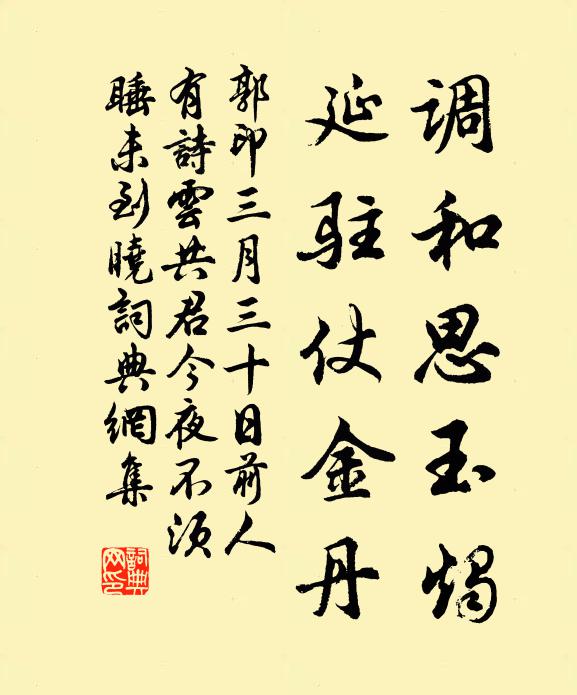 调和思玉烛
延驻仗金丹
郭印三月三十日前人
有詩雲共君今夜不須
睡未到曉詞典網集
詞典
网印